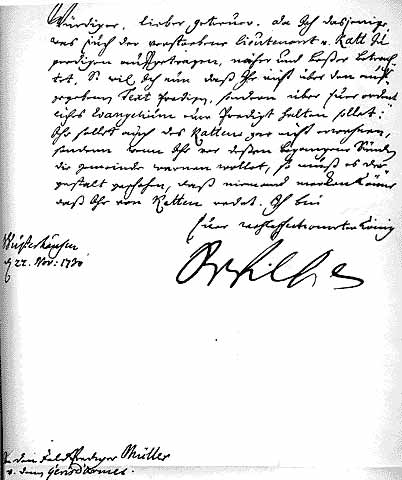 Würdiger, lieber getreuer. da Ich dasjenige,
was Euch der verstorbene Lieutenant v. Katt zu
predigen aufgetragen, näher und beßer betrach-
tet, So will Ich nun daß Ihr nicht über den auf-
gegebenen Text predigen, sondern über Euer ordent
liches Evangelium eine Predigt halten sollet:
Ihr sollet auch des Katten gar nicht erwehnen,
sondern wenn Ihr vor deßen begangenen Sünden
die gemeinde warnen wollet, so muß es der
gestalt geschehen, daß niemand mercken könne
daß Ihr von Katten redet. Ich bin
Euer wohlaffectionirter König
Wusterhausen
d 22. Nov: 1730
FrWilhelm
An den Feldprediger Müller
v. dem Gensd'armes.